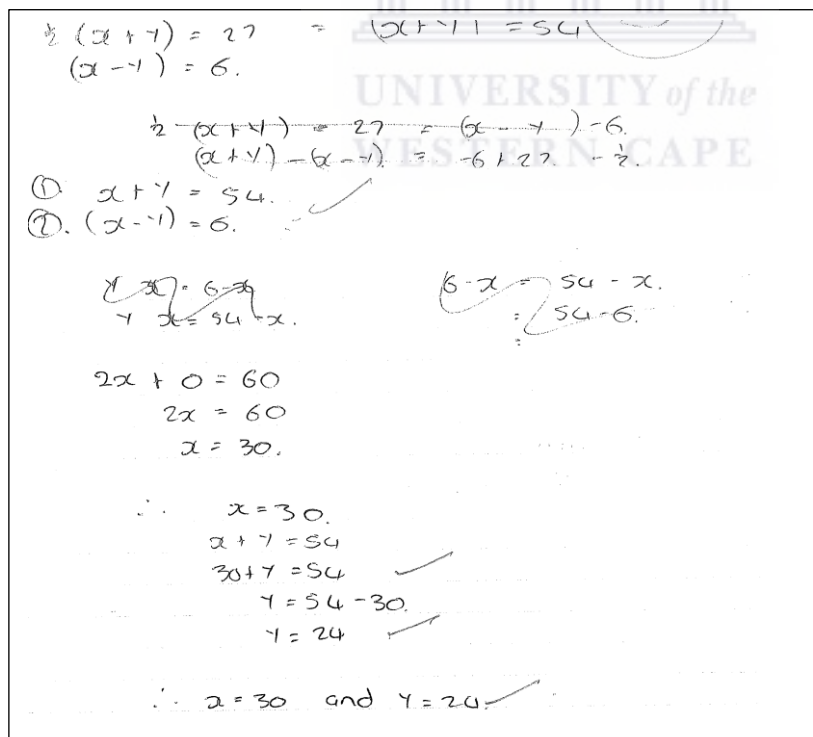 ½ (x + y) = 27 = (x + y) = 54
(x - y) = 6.
UNIVERSITY of the
½ (x + y) = 27 = (x - y) - 6.
(x + y) - (x - y) = -6 + 27 - ½.
WESTERN CAPE
① x + y = 54.
②. (x - y) = 6.
6 - x
y x = 54 - x.
6 - x = 54 - x.
= 54 - 6.
=
2x + 0 = 60
2x = 60
x = 30.
∴ x = 30.
x + y = 54
30 + y = 54
y = 54 - 30.
y = 24
∴ x = 30 and y = 24.